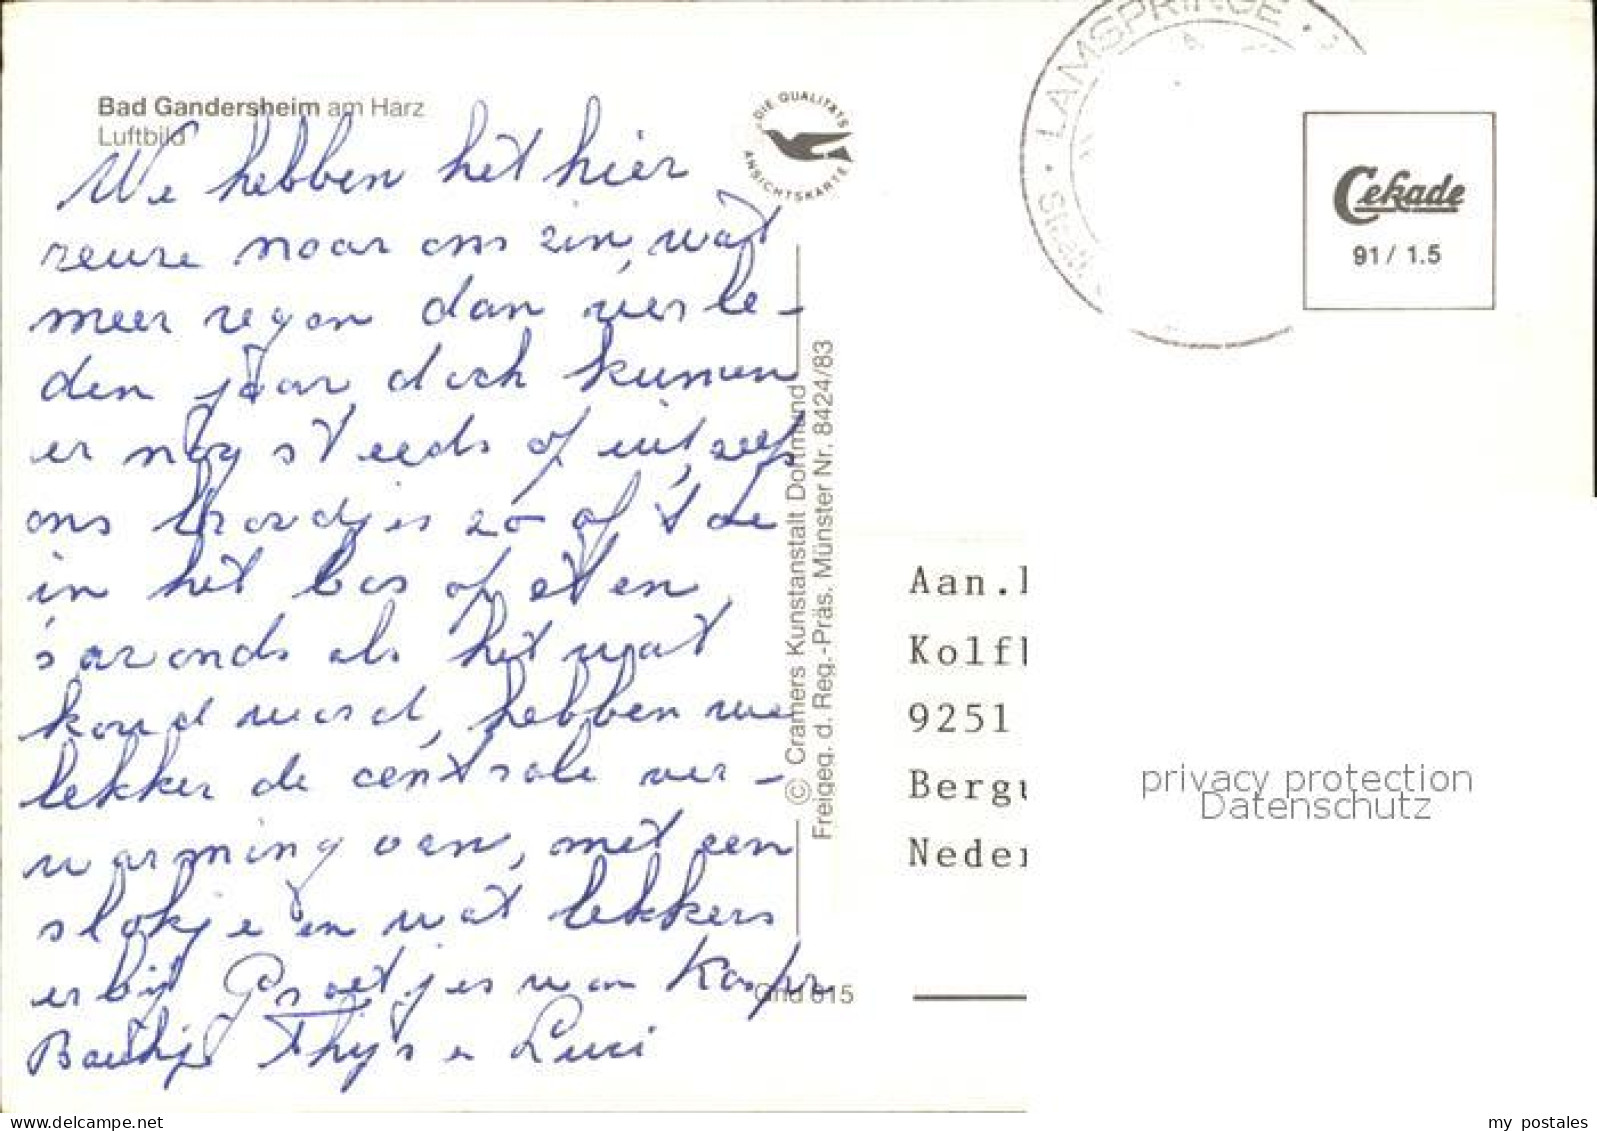 Bad Gandersheim am Harz
Luftbild
We hebben het hier
reuze naar ons zin, wat
meer regen dan verle-
den jaar, doch kunnen
er nog steeds op uit, zelfs
ons broodjes zo af t toe
in het bos op eten
s'avonds als het wat
koud word, hebben we
lekker de centrale ver-
warming aan, met een
slokje en wat lekkers
erbij Groetjes van
Thijs en Luci
DIE QUALITÄTS
ANSICHTSKARTE
© Cramers Kunstanstalt Dortmund
Freigeg. d. Reg.-Präs. Münster Nr. 8424/83
615
LAMSPRINGE
Cekade
91/ 1.5
Aan.
Kolf
9251
Berg
Neder
privacy protection
Datenschutz
my postales